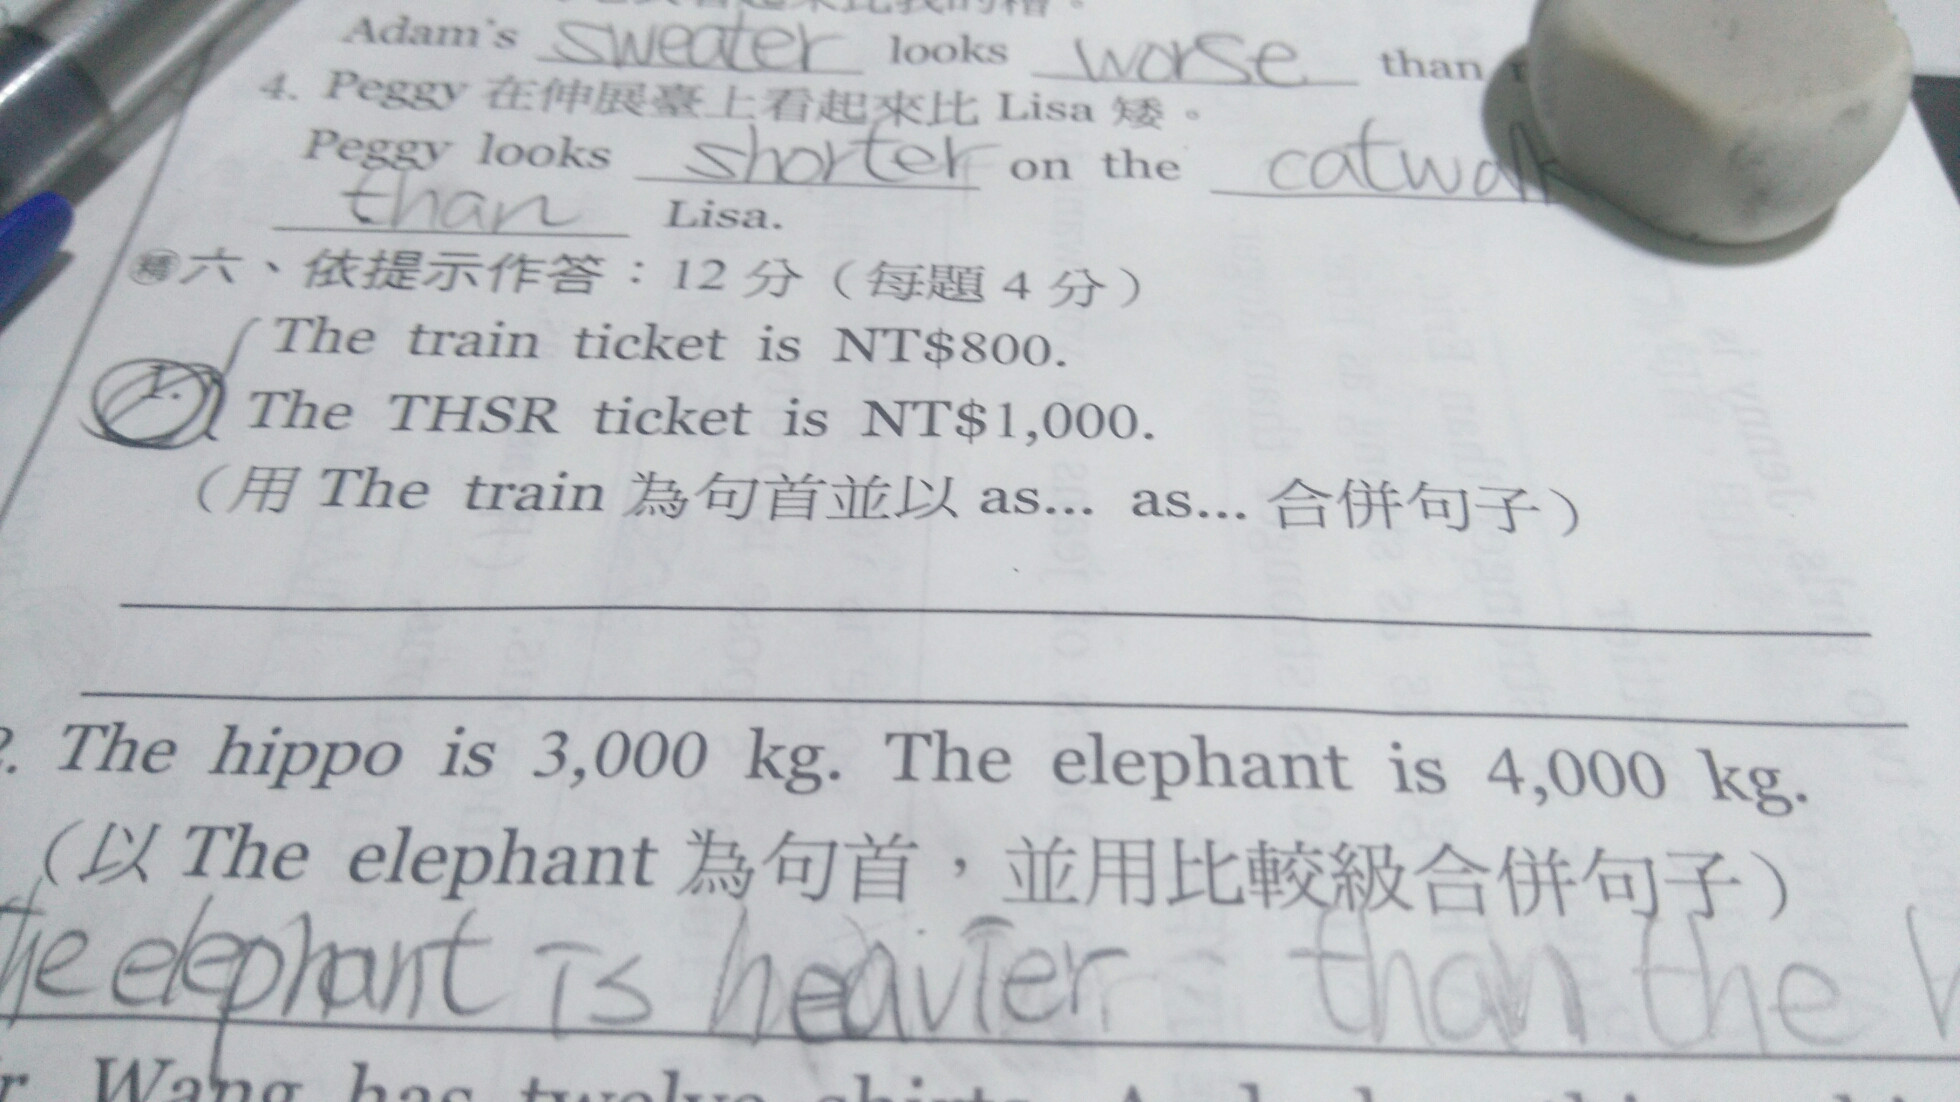 Adam's sweater looks worse than
4. Peggy 在伸展臺上看起來比 Lisa 矮。
Peggy looks shorter on the catwalk
than Lisa.
六、依提示作答：12 分（每題 4 分）
The train ticket is NT$800.
1.
The THSR ticket is NT$1,000.
（用 The train 為句首並以 as... as... 合併句子）
2. The hippo is 3,000 kg. The elephant is 4,000 kg.
（以 The elephant 為句首，並用比較級合併句子）
The elephant is heavier than the
Wang has twelve shirts.